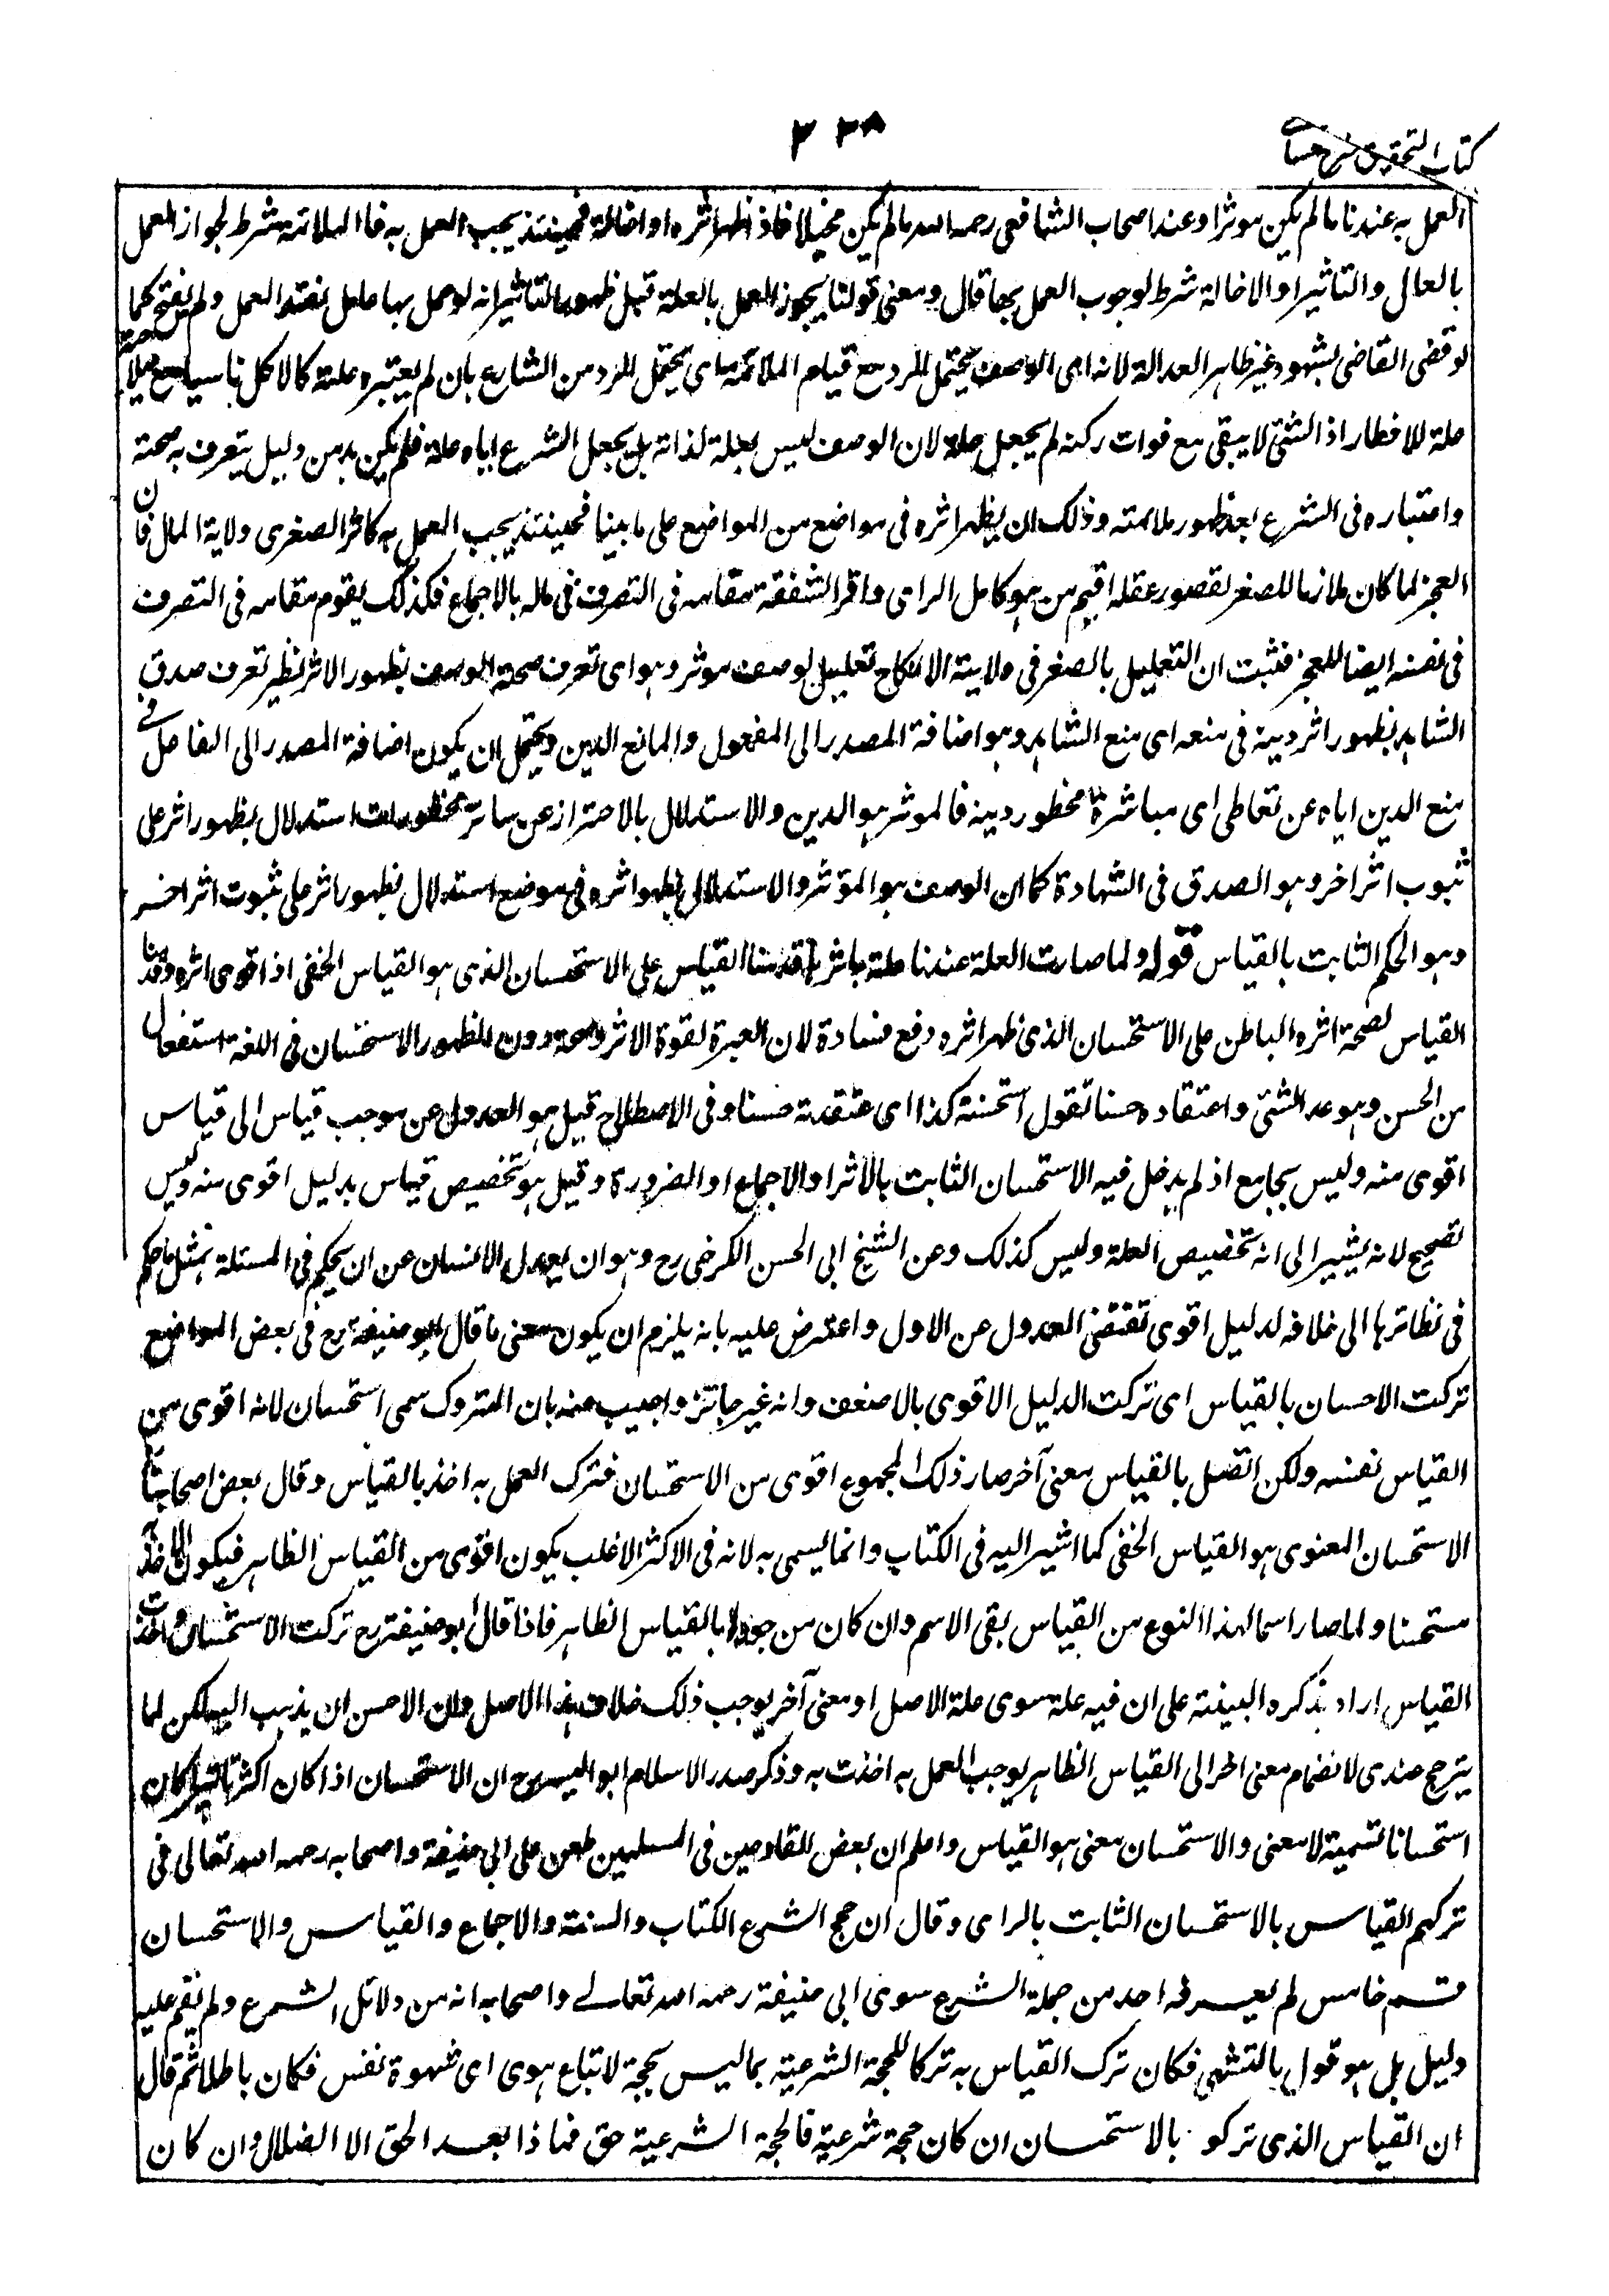 كتاب التحقيق شرح حسامى
٢٣٨
العمل به عندنا ما لم يكن موثرا وعند اصحاب الشافعى رحمه الله ما لم يكن مخيلا فاذا ظهر اثره او اخالة فحينئذ يجب العمل به فالملائمة شرط لجواز العمل
بالعلل والتاثير او الاخالة شرط لوجوب العمل بها قال ومعنى قولنا يجوز العمل بالعلة قبل ظهور التاثير انه لو عمل بها عامل نفذ العمل ولم يفسخ كما
لو قضى القاضى بشهود غير ظاهر العدالة لانه اى الوصف يحتمل الرد مع قيام الملائمة اى يحتمل الرد من الشارع بان لم يعتبره علة كالاكل ناسيا مع صلاحه
علة للافطار اذ الشئ لا يبقى مع فوات ركنه لم يجعل علة لان الوصف ليس بعلة لذاته بل بجعل الشرع اياه علة فلم يكن بد من دليل يتعرف به صحته
واعتباره فى الشرع بعد ظهور ملائمته وذلك ان يظهر اثره فى مواضع من المواضع على ما بينا فحينئذ يجب العمل به كاثر الصغر فى ولاية المال فان
العجز لما كان ملازما للصغر لقصور عقله اقيم من هو كامل الراى وافر الشفقة مقامه فى التصرف فى ماله بالاجماع فكذلك يقوم مقامه فى التصرف
فى نفسه ايضا للعجز فثبت ان التعليل بالصغر فى ولاية الانكاح تعليل بوصف موثر وهو اى تعرف صحة الوصف بظهور الاثر نظير تعرف صدق
الشاهد بظهور اثر دينه فى منعه اى منع الشاهد وهو اضافة المصدر الى المفعول والمانع الدين ويحتمل ان يكون اضافة المصدر الى الفاعل فى
منع الدين اياه عن تعاطى اى مباشرة محظور دينه فالموثر هو الدين والاستدلال بالاحتراز عن سائر محظورات استدلال بظهور اثر على
ثبوب اثر اخر وهو الصدق فى الشهادة كما ان الوصف هو المؤثر والاستدلال بظهور اثره فى موضع استدلال بظهور اثر على ثبوت اثر اخر
وهو الحكم الثابت بالقياس قوله ولما صارت العلة عندنا علة باثرها قدمنا القياس على الاستحسان الذى هو القياس الخفى اذا قوى اثره وقدمنا
القياس لصحة اثره الباطن على الاستحسان الذى ظهر اثره دفع فسادة لان العبرة لقوة الاثر وصحته دون الظهور الاستحسان فى اللغة استفعال
من الحسن وهو عد الشئ واعتقاده حسنا تقول استحسنته كذا اى عتقدته حسنا وفى الاصطلاح قيل هو العدول عن موجب قياس الى قياس
اقوى منه وليس بجامع اذ لم يدخل فيه الاستحسان الثابت بالاثر او الاجماع او الضرورة وقيل هو تخصيص قياس بدليل اقوى منه وليس
بصحيح لانه يشير الى انه تخصيص العلة وليس كذلك وعن الشيخ ابى الحسن الكرخى رح وهو ان يعدل الانسان عن ان يحكم فى المسئلة بمثل ما حكم
فى نظائرها الى خلافه لدليل اقوى تقتضى العدول عن الاول واعترض عليه بانه يلزم ان يكون معنى ما قال ابو حنيفة رح فى بعض المواضع
تركت الاحسان بالقياس اى تركت الدليل الاقوى بالاضعف وانه غير جائز واجيب عنه بان المتروك سمى استحسان لانه اقوى من
القياس نفسه ولكن اتصل بالقياس معنى آخر صار ذلك المجموع اقوى من الاستحسان فترك العمل به اخذ بالقياس وقال بعض اصحابنا
الاستحسان المعنوى هو القياس الخفى كما اشير اليه فى الكتاب وانما يسمى به لانه فى الاكثر الاغلب يكون اقوى من القياس الظاهر فيكون الاخذ
مستحسنا ولما صار اسما لهذا النوع من القياس بقى الاسم وان كان من جوار بالقياس الظاهر فاذا قال ابو حنيفة رح تركت الاستحسان واخذت
القياس اراد بذكره البينة على ان فيه علة سوى علة الاصل او معنى آخر يوجب ذلك خلاف هذا الاصل وان الاحسن ان يذهب اليه لكن لما
يترجح عندى لانضمام معنى اخر الى القياس الظاهر يوجب العمل به اخذت به وذكر صدر الاسلام ابو اليسر رح ان الاستحسان اذا كان اكثر تاثيرا كان
استحسانا تسمية لا معنى والاستحسان معنى هو القياس واعلم ان بعض القادحين فى المسلمين طعن على ابى حنيفة واصحابه رحمه الله تعالى فى
تركهم القياس بالاستحسان الثابت بالراى وقال ان حجج الشرع الكتاب والسنة والاجماع والقياس والاستحسان
قسم خامس لم يعرفه احد من حملة الشرع سوى ابى حنيفة رحمه الله تعالى واصحابه انه من دلائل الشرع ولم يقم عليه
دليل بل هو قول بالتشهى فكان ترك القياس به تركا للحجة الشرعية بما ليس بحجة لاتباع هوى اى شهوة نفس فكان باطلا ثم قال
ان القياس الذى تركو بالاستحسان ان كان حجة شرعية فالحجة الشرعية حق فماذا بعد الحق الا الضلال وان كان